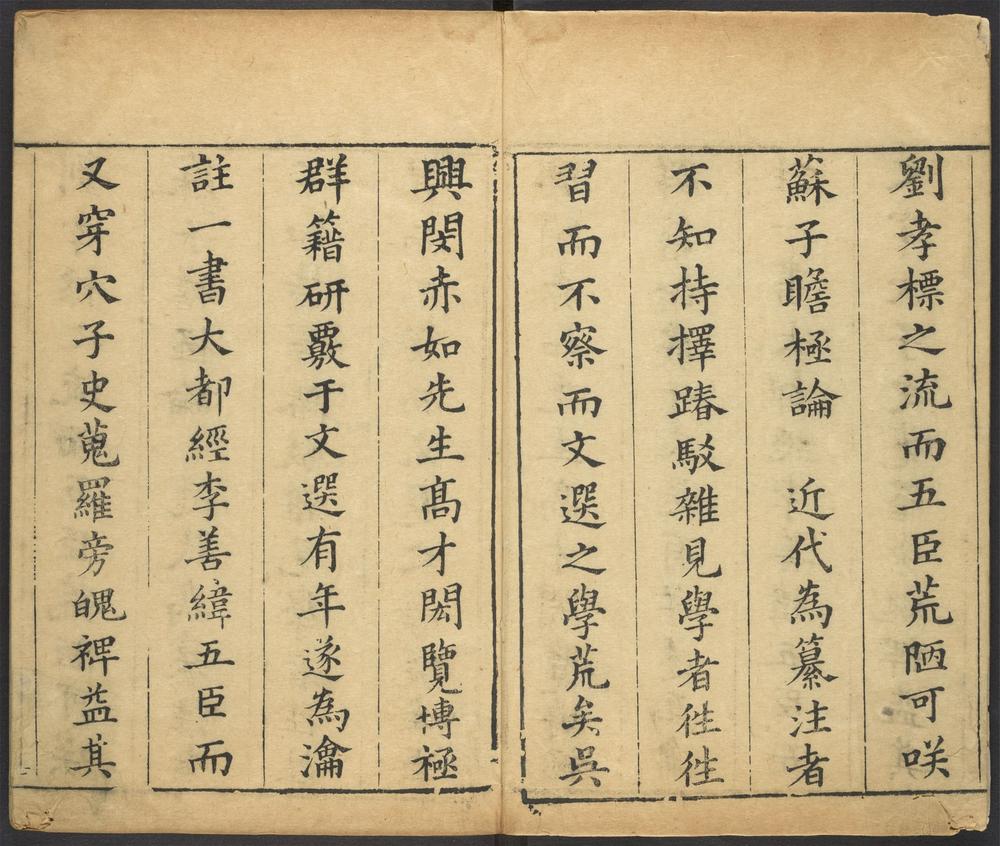 劉孝標之流而五臣荒陋可咲
蘇子瞻極論　近代為纂注者
不知持擇踳駁雜見學者徃徃
習而不察而文選之學荒矣吳
興閔赤如先生髙才閎覽博極
群籍研覈于文選有年遂為瀹
註一書大都經李善緯五臣而
又穿穴子史蒐羅旁魄裨益其